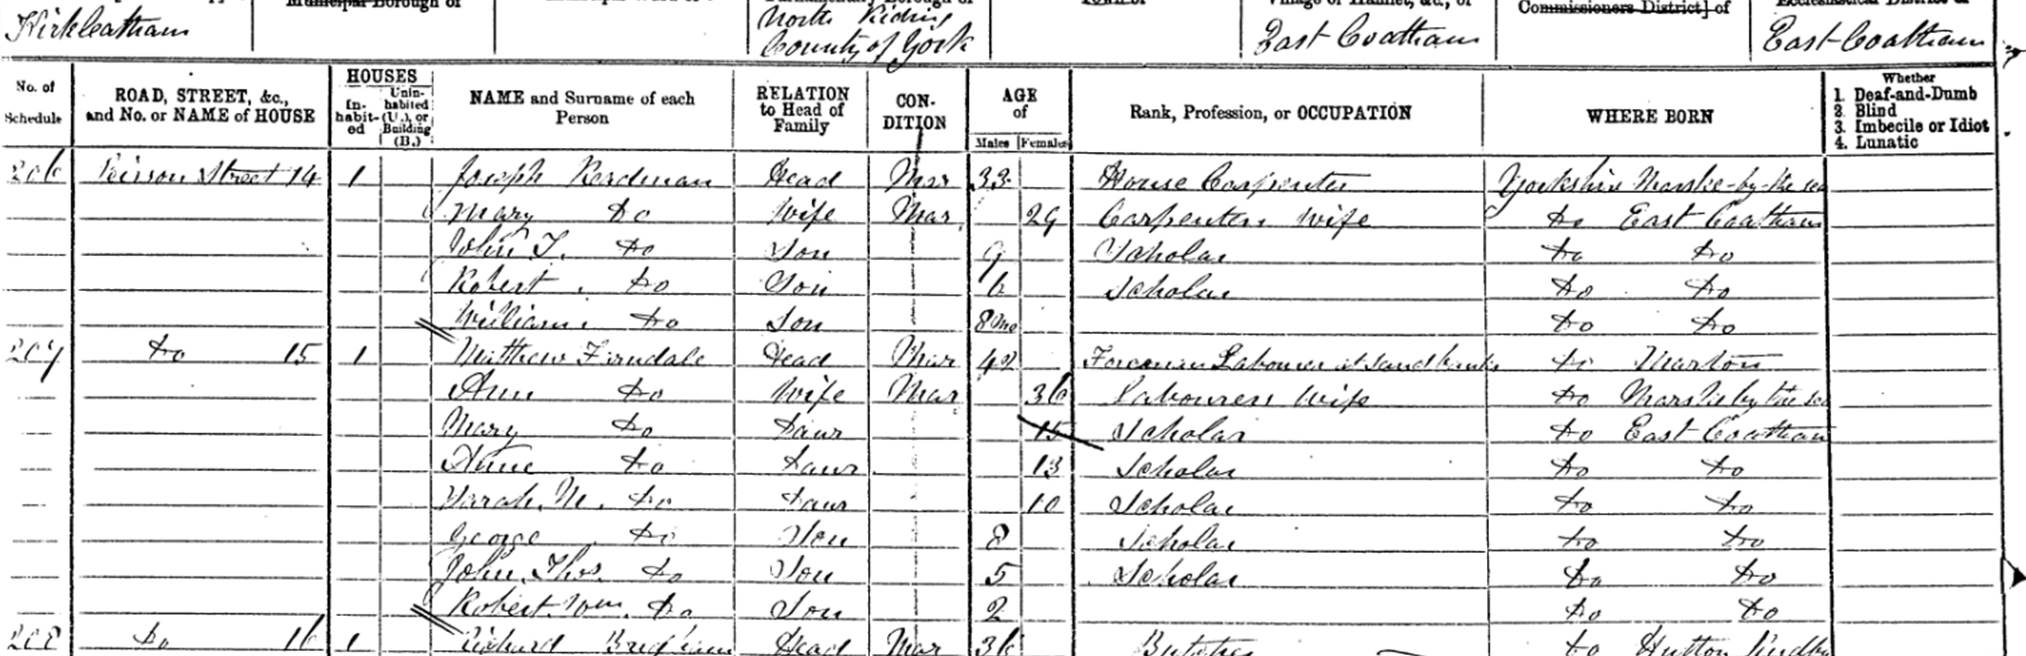 Municipal Borough of
Kirkleatham
North Riding
County of York
Village or Hamlet, &c., of
East Coatham
Commissioners District] of
East Coatham
No. of Schedule
ROAD, STREET, &c., and No. or NAME of HOUSE
HOUSES
In-habit-ed
Unin-habited (U.), or Building (B.)
NAME and Surname of each Person
RELATION to Head of Family
CON-DITION
AGE of
Males Females
Rank, Profession, or OCCUPATION
WHERE BORN
Whether
1. Deaf-and-Dumb
2. Blind
3. Imbecile or Idiot
4. Lunatic
206 Street 14 1 Joseph Readman Head Mar 33 House Carpenter Yorkshire Marske-by-the sea
Mary Do Wife Mar 29 Carpenters Wife Do East Coatham
John T. Do Son 9 Scholar Do Do
Robert Do Son 6 Scholar Do Do
William Do Son 8mo Do Do
207 Do 15 1 Matthew Farndale Head Mar 42 Foreman Labourer at Do Marton
Ann Do Wife Mar 36 Labourers Wife Do Marske by the sea
Mary Do Daur 15 Scholar Do East Coatham
Anne Do Daur 13 Scholar Do Do
Sarah M. Do Daur 10 Scholar Do Do
George Do Son 8 Scholar Do Do
John Thos. Do Son 5 Scholar Do Do
Robert Wm. Do Son 2 Do Do
208 Do 16 1 Richard Head Mar 36 Butcher Do Hutton